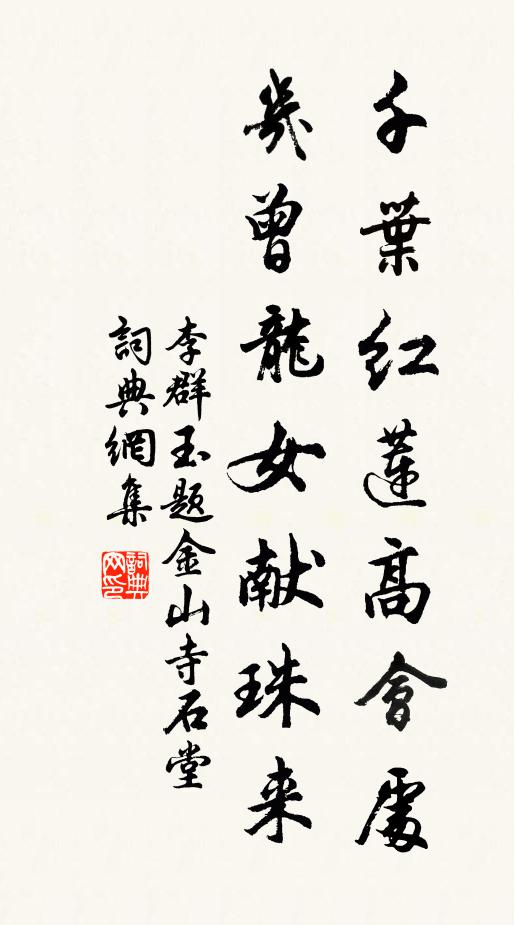 千葉红蓮高會處
幾曾龍女献珠来
李群玉题金山寺石堂
詞典網集
詞典网印